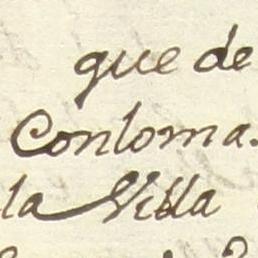 que de
Conloma.
la Villa